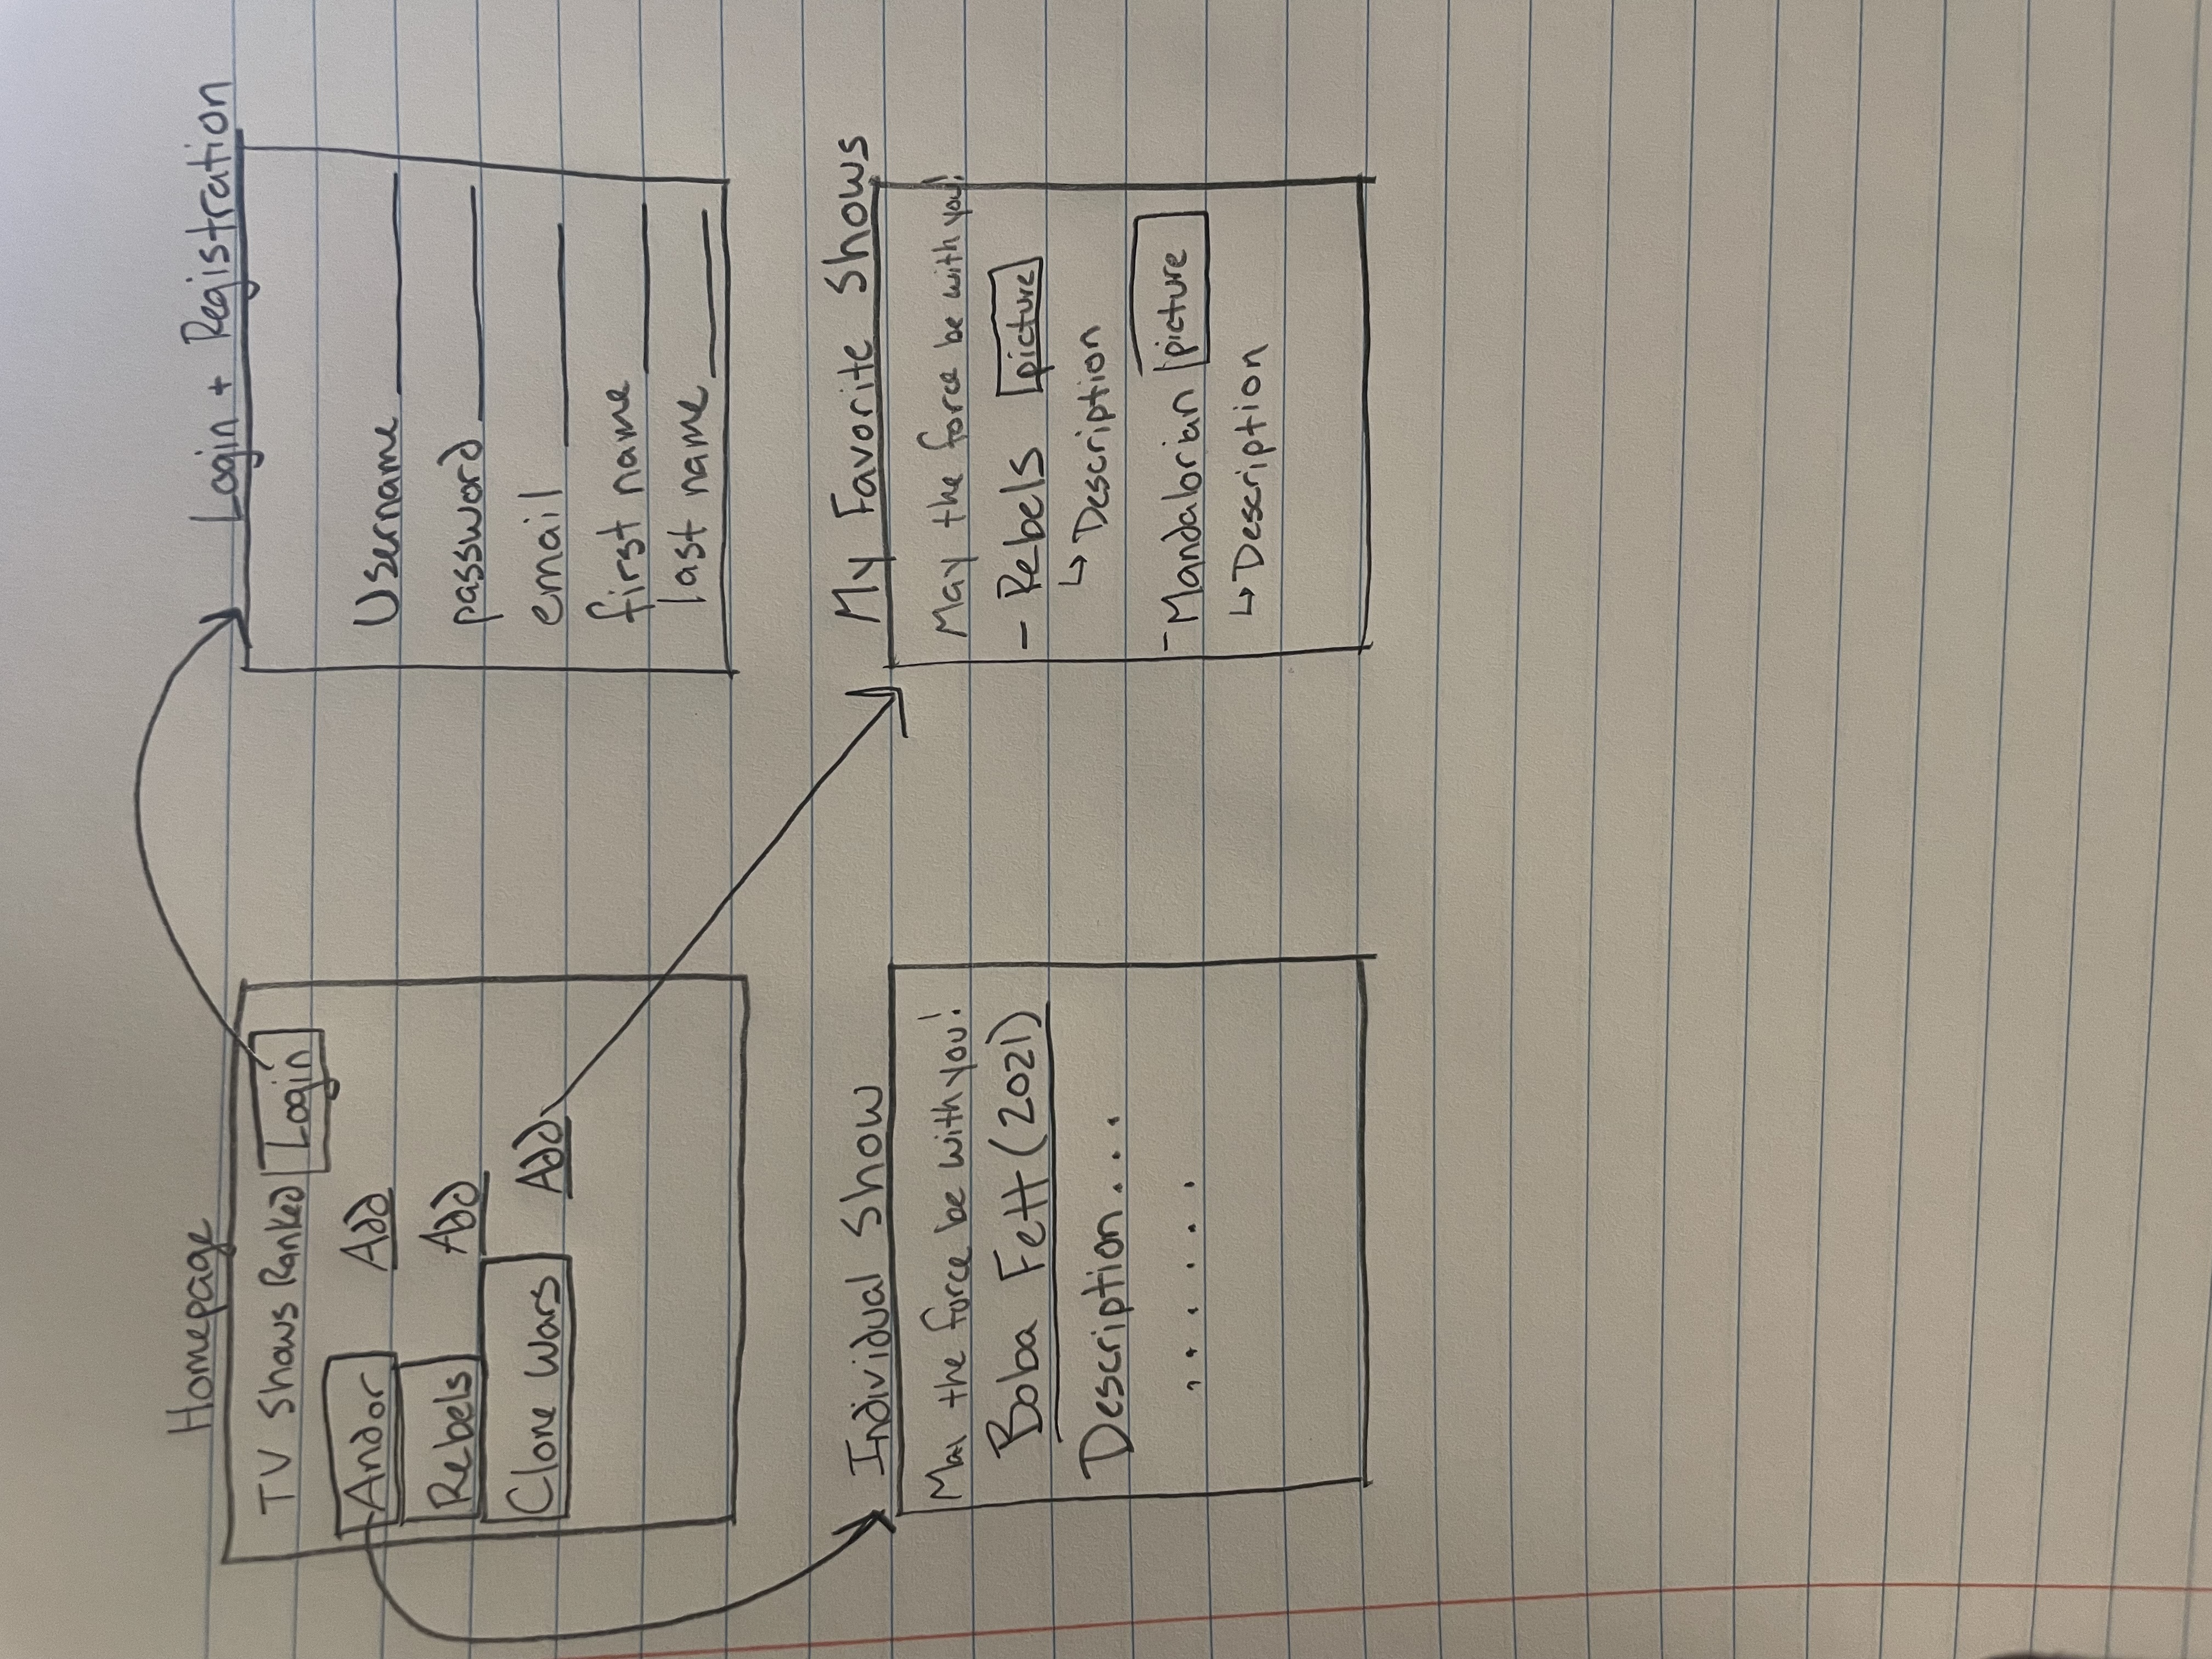 Homepage
TV Shows Ranked Login
Andor Add
Rebels Add
Clone Wars Add
Login + Registration
Username
password
email
first name
last name
Individual Show
May the force be with you!
Boba Fett (2021)
Description...
......
My Favorite Shows
May the force be with you!
- Rebels picture
↳ Description
- Mandalorian picture
↳ Description